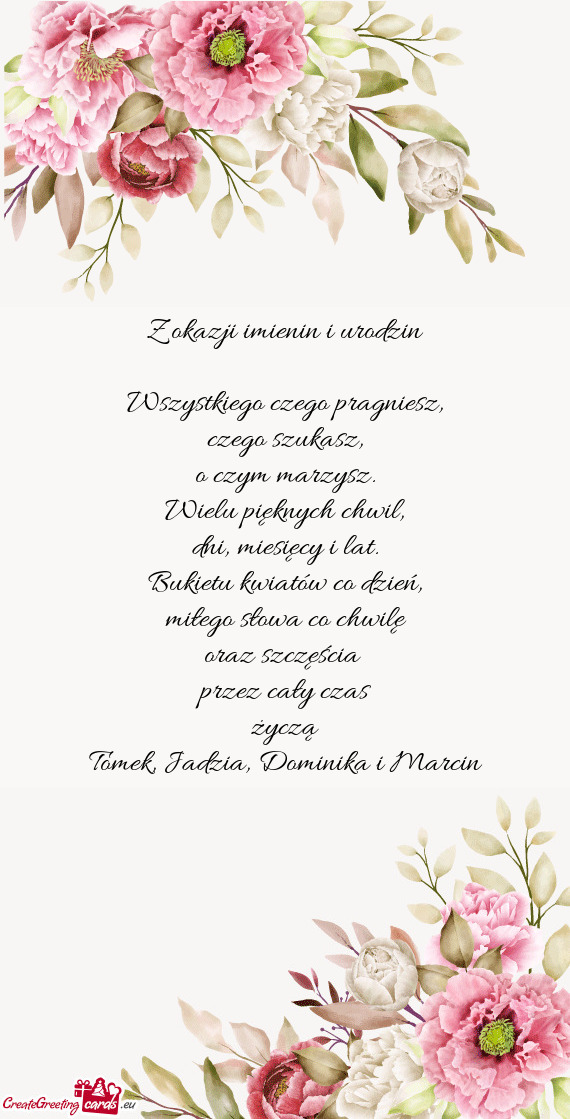 Z okazji imienin i urodzin
Wszystkiego czego pragniesz,
czego szukasz,
o czym marzysz.
Wielu pięknych chwil,
dni, miesięcy i lat.
Bukietu kwiatów co dzień,
miłego słowa co chwilę
oraz szczęścia
przez cały czas
życzą
Tomek, Jadzia, Dominika i Marcin
CreateGreeting cards .eu